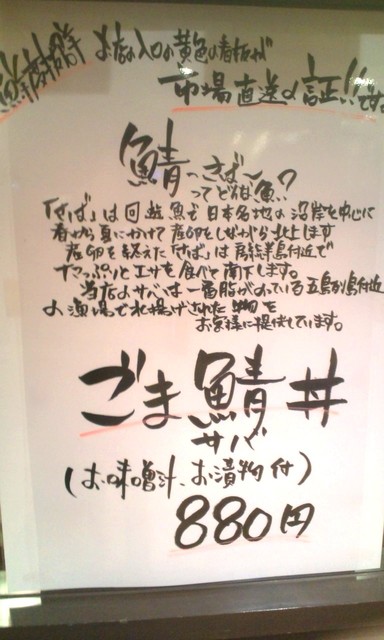 お店の入口の黄色の看板が
市場直送の証!!です
鯖〜さば〜
ってどんな魚?
「さば」は回遊魚で日本各地の沿岸を中心に
春から夏にかけて産卵をしながら北上します
産卵を終えた「さば」は房総半島付近で
たっぷりとエサを食べ南下します。
当店のサバは一番脂がのっている五島列島付近
の漁場で水揚げされた物を
お客様に提供しています。
ごま鯖丼
サバ
(お味噌汁、お漬物付)
880円